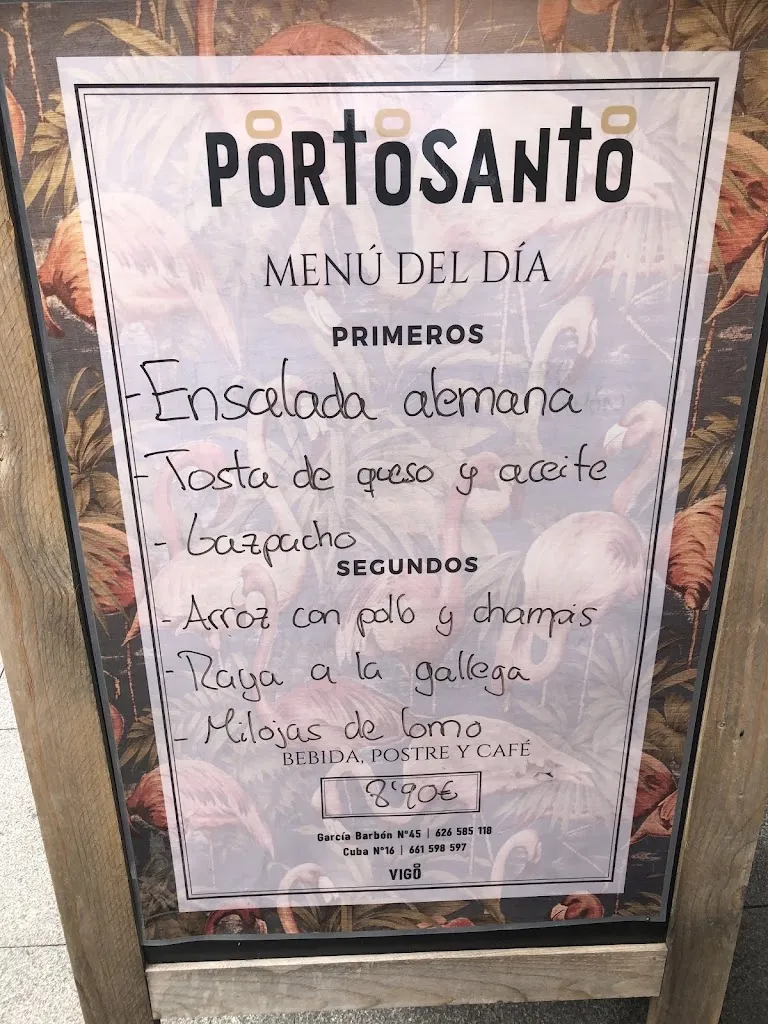 PORTOSANTO
MENÚ DEL DÍA
PRIMEROS
- Ensalada alemana
- Tosta de queso y aceite
- Gazpacho
SEGUNDOS
- Arroz con pollo y champis
- Raya a la gallega
- Milojas de lomo
BEBIDA, POSTRE Y CAFÉ
8'90€
García Barbón Nº45 | 626 585 118
Cuba Nº16 | 661 598 597
VIGO